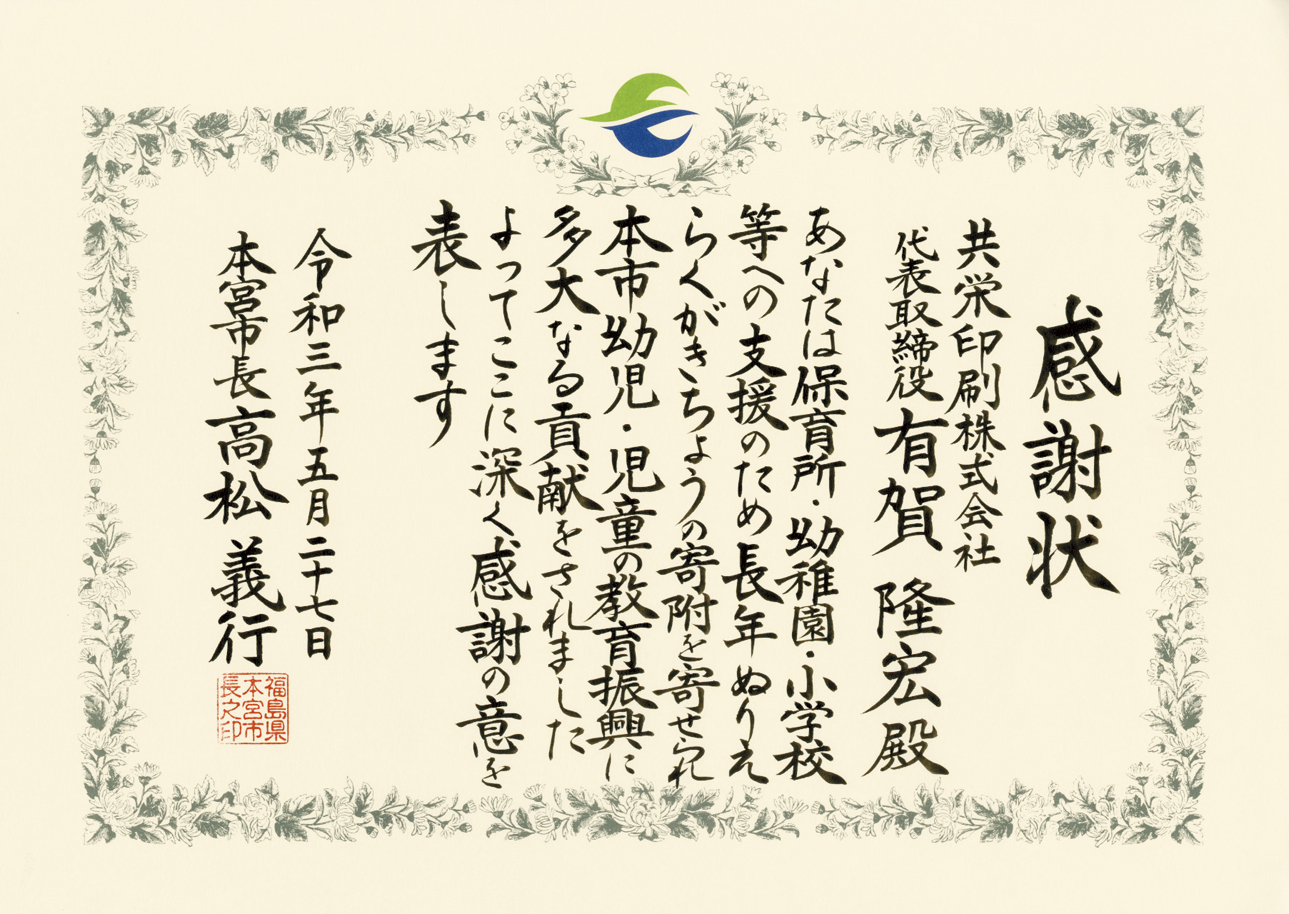 感謝状
共栄印刷株式会社
代表取締役 有賀 隆宏 殿
あなたは保育所・幼稚園・小学校
等への支援のため長年ぬりえ
らくがきちょうの寄附を寄せられ
本市幼児・児童の教育振興に
多大なる貢献をされました
よってここに深く感謝の意を
表します
令和三年五月二十七日
本宮市長 高松 義行
福島県
本宮市
長之印